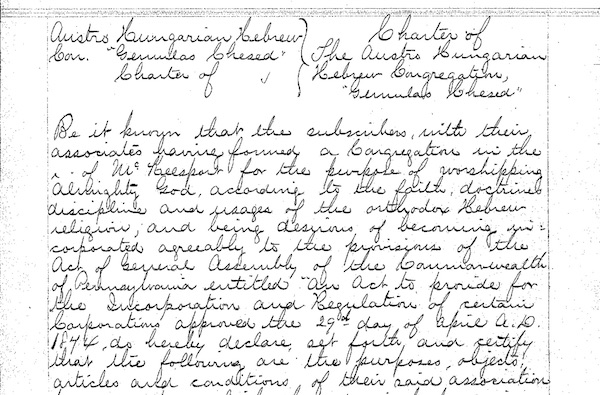 Austro Hungarian Hebrew
Con. "Gemulas Chesed"
Charter of
Charter of
The Austro Hungarian
Hebrew Congregation,
"Gemulas Chesed"
Be it known that the subscribers, with their
associates having formed a Congregation in the
of McKeesport for the purpose of worshipping
Almighty God, according to the faith, doctrines
discipline and usages of the orthodox Hebrew
religion, and being desirous of becoming in=
corporated agreeably to the provisions of the
Act of General Assembly of the Commonwealth
of Pennsylvania entitled "An Act to provide for
the Incorporation and Regulation of certain
Corporations approved the 29th day of April A.D.
1874, do hereby declare, set forth and certify
that the following are the purposes, objects,
articles and conditions, of their said association